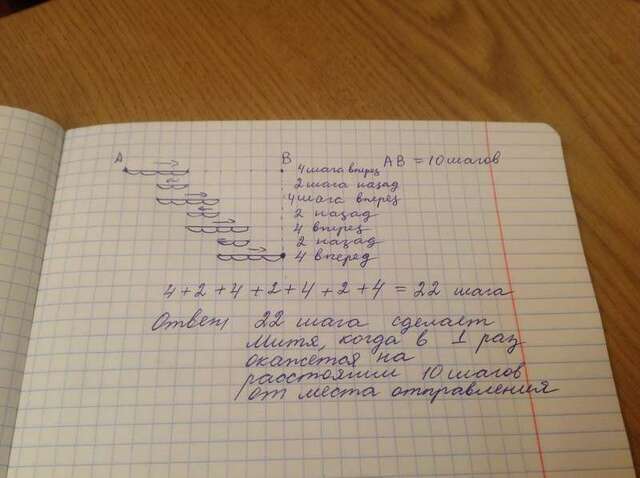 А В АВ = 10 шагов
4 шага вперед
2 шага назад
4 шага вперёд
2 назад
4 вперед
2 назад
4 вперед
4 + 2 + 4 + 2 + 4 + 2 + 4 = 22 шага
Ответ: 22 шага сделает
Митя, когда в 1 раз
окажется на
расстоянии 10 шагов
от места отправления